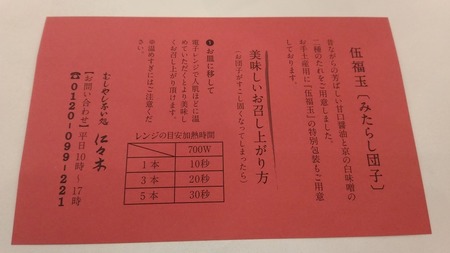 伍福玉〔みたらし団子〕
昔ながらの芳ばしい甘口醤油と京の白味噌の
二種のたれをご用意しました。
お手土産用に『伍福玉』の特別包装もご用意
しております。
美味しいお召し上がり方
(お団子がすこし固くなってしまったら)
❶お皿に移して
電子レンジで人肌ほどに温
めていただくとより美味し
くお召し上がり頂けます。
※温めすぎにはご注意くださ
い。
レンジの目安加熱時間
700W
1本 10秒
3本 20秒
5本 30秒
むしやしない処 仁々木
【お問い合わせ】平日10時〜17時
☎0120-099-221